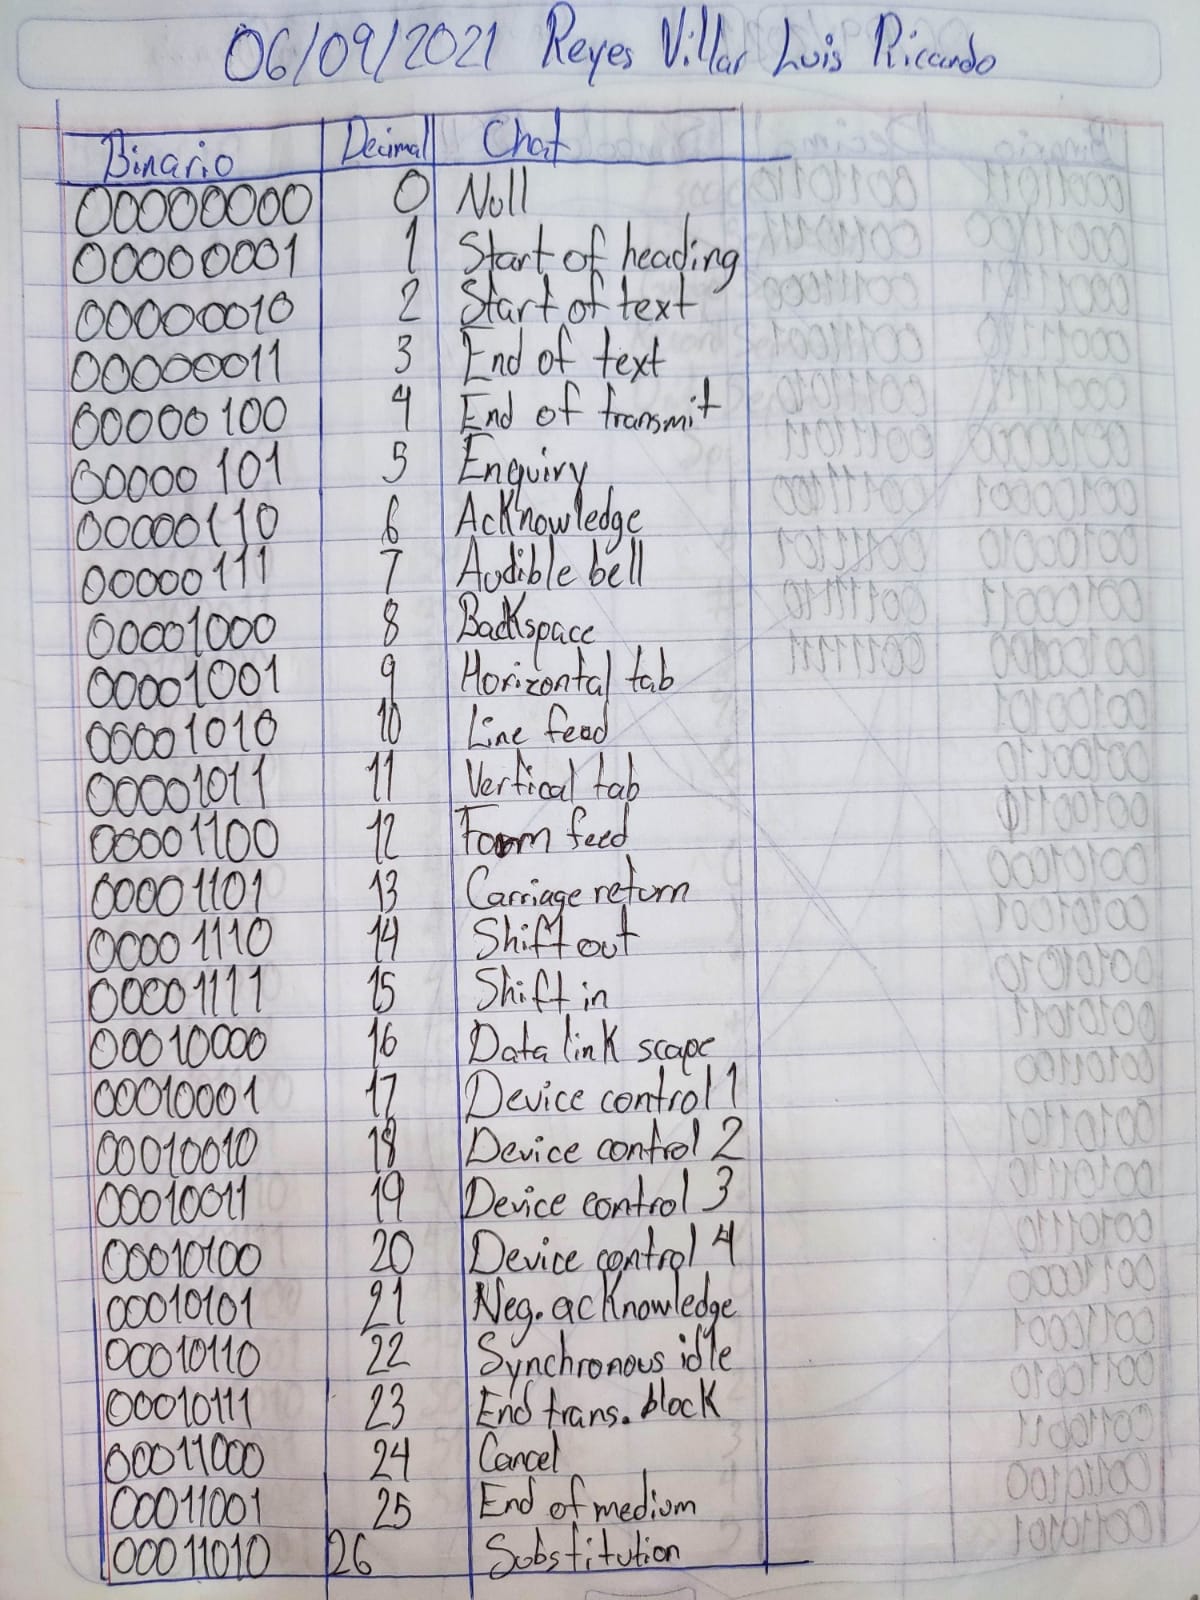 06/09/2021 Reyes Villar Luis Ricardo
Binario Decimal Chat
00000000 0 Null
00000001 1 Start of heading
00000010 2 Start of text
00000011 3 End of text
00000100 4 End of transmit
00000101 5 Enquiry
00000110 6 Acknowledge
00000111 7 Audible bell
00001000 8 Backspace
00001001 9 Horizontal tab
00001010 10 Line feed
00001011 11 Vertical tab
00001100 12 Form feed
00001101 13 Carriage return
00001110 14 Shift out
00001111 15 Shift in
00010000 16 Data link scape
00010001 17 Device control 1
00010010 18 Device control 2
00010011 19 Device control 3
00010100 20 Device control 4
00010101 21 Neg. acknowledge
00010110 22 Synchronous idle
00010111 23 End trans. block
00011000 24 Cancel
00011001 25 End of medium
00011010 26 Substitution